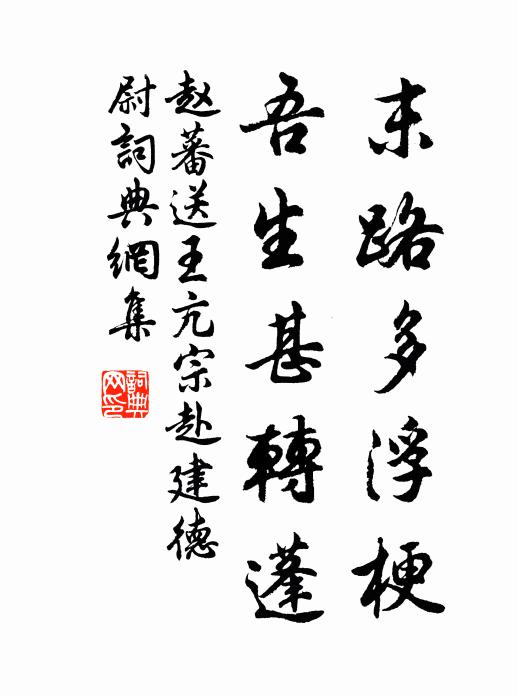 末路多浮梗
吾生甚轉蓬
赵蕃送王亢宗赴建德
尉詞典網集
詞典网印